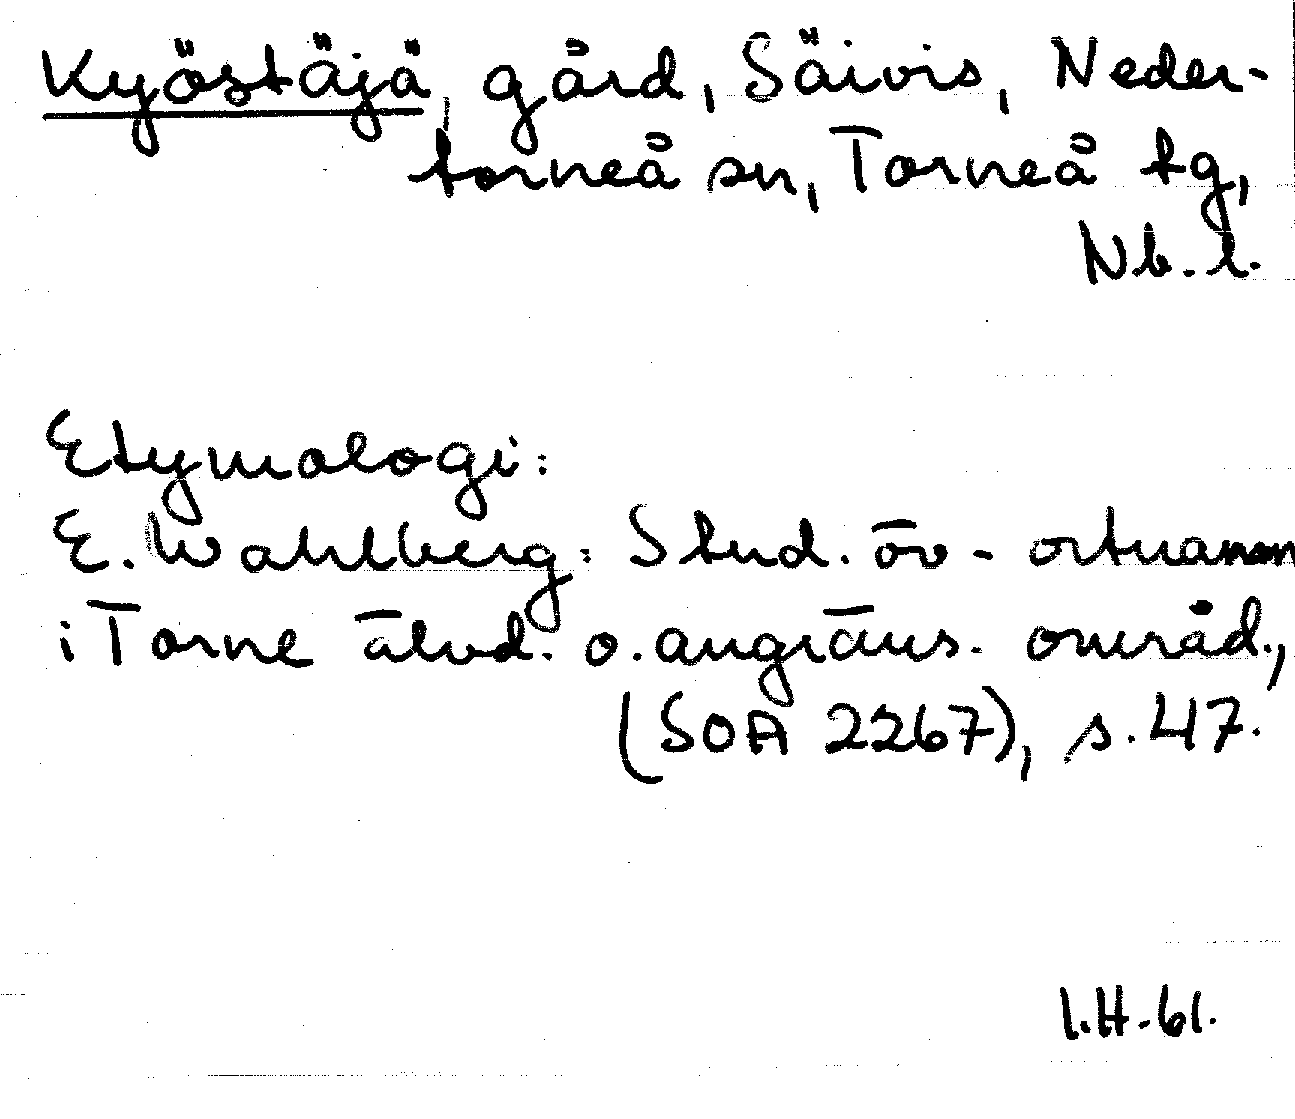 Kyöstäjä, gård, Säivis, Neder-
torneå sn, Torneå tg,
Nb. l.
Etymologi:
E. Wahlberg: Stud. öv- ortnamn
i Torne älvd. o. angräns. områd.,
(SOA 2267), s. 47.
I.H.-61.